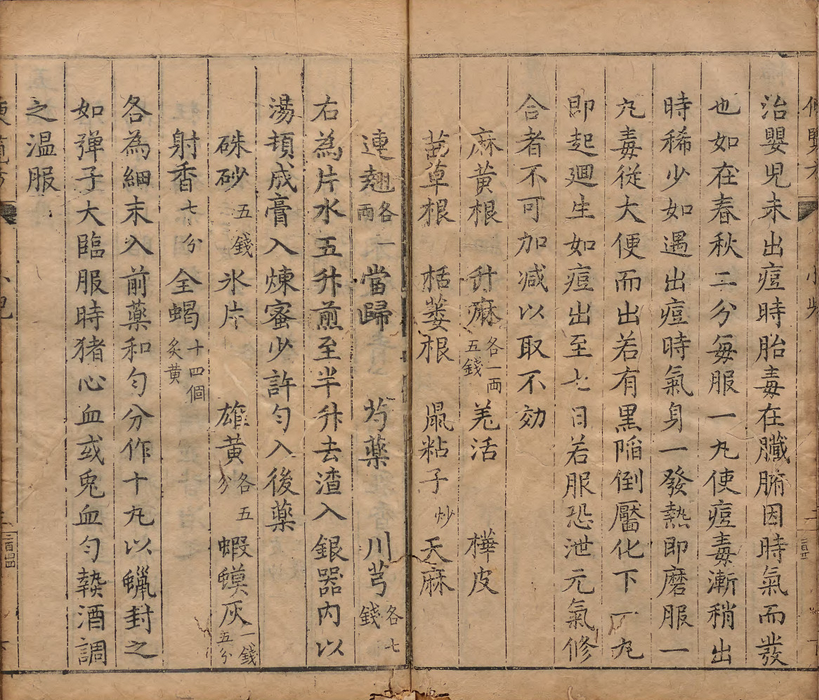 治嬰兒未出痘時胎毒在臟腑因時氣而發
也如在春秋二分每服一丸使痘毒漸稍出
時稀少如遇出痘時氣身一發熱即磨服一
丸毒從大便而出若有黑陷倒靨化下一丸
即起迴生如痘出至七日若服恐泄元氣修
合者不可加減以取不効
麻黄根 升麻各一兩五錢 羌活 樺皮
草根 栝蔞根 鼠粘子炒 天麻
連翹各一兩 當歸 芍藥 川芎各七錢
右為片水五升煎至半升去渣入銀器内以
湯頓成膏入煉蜜少許勻入後藥
硃砂五錢 氷片 雄黄各五分 蝦蟆灰一錢五分
射香七分 全蝎十四個炙黄
各為細末入前藥和勻分作十丸以蠟封之
如弹子大臨服時猪心血或兎血勻熱酒調
之温服